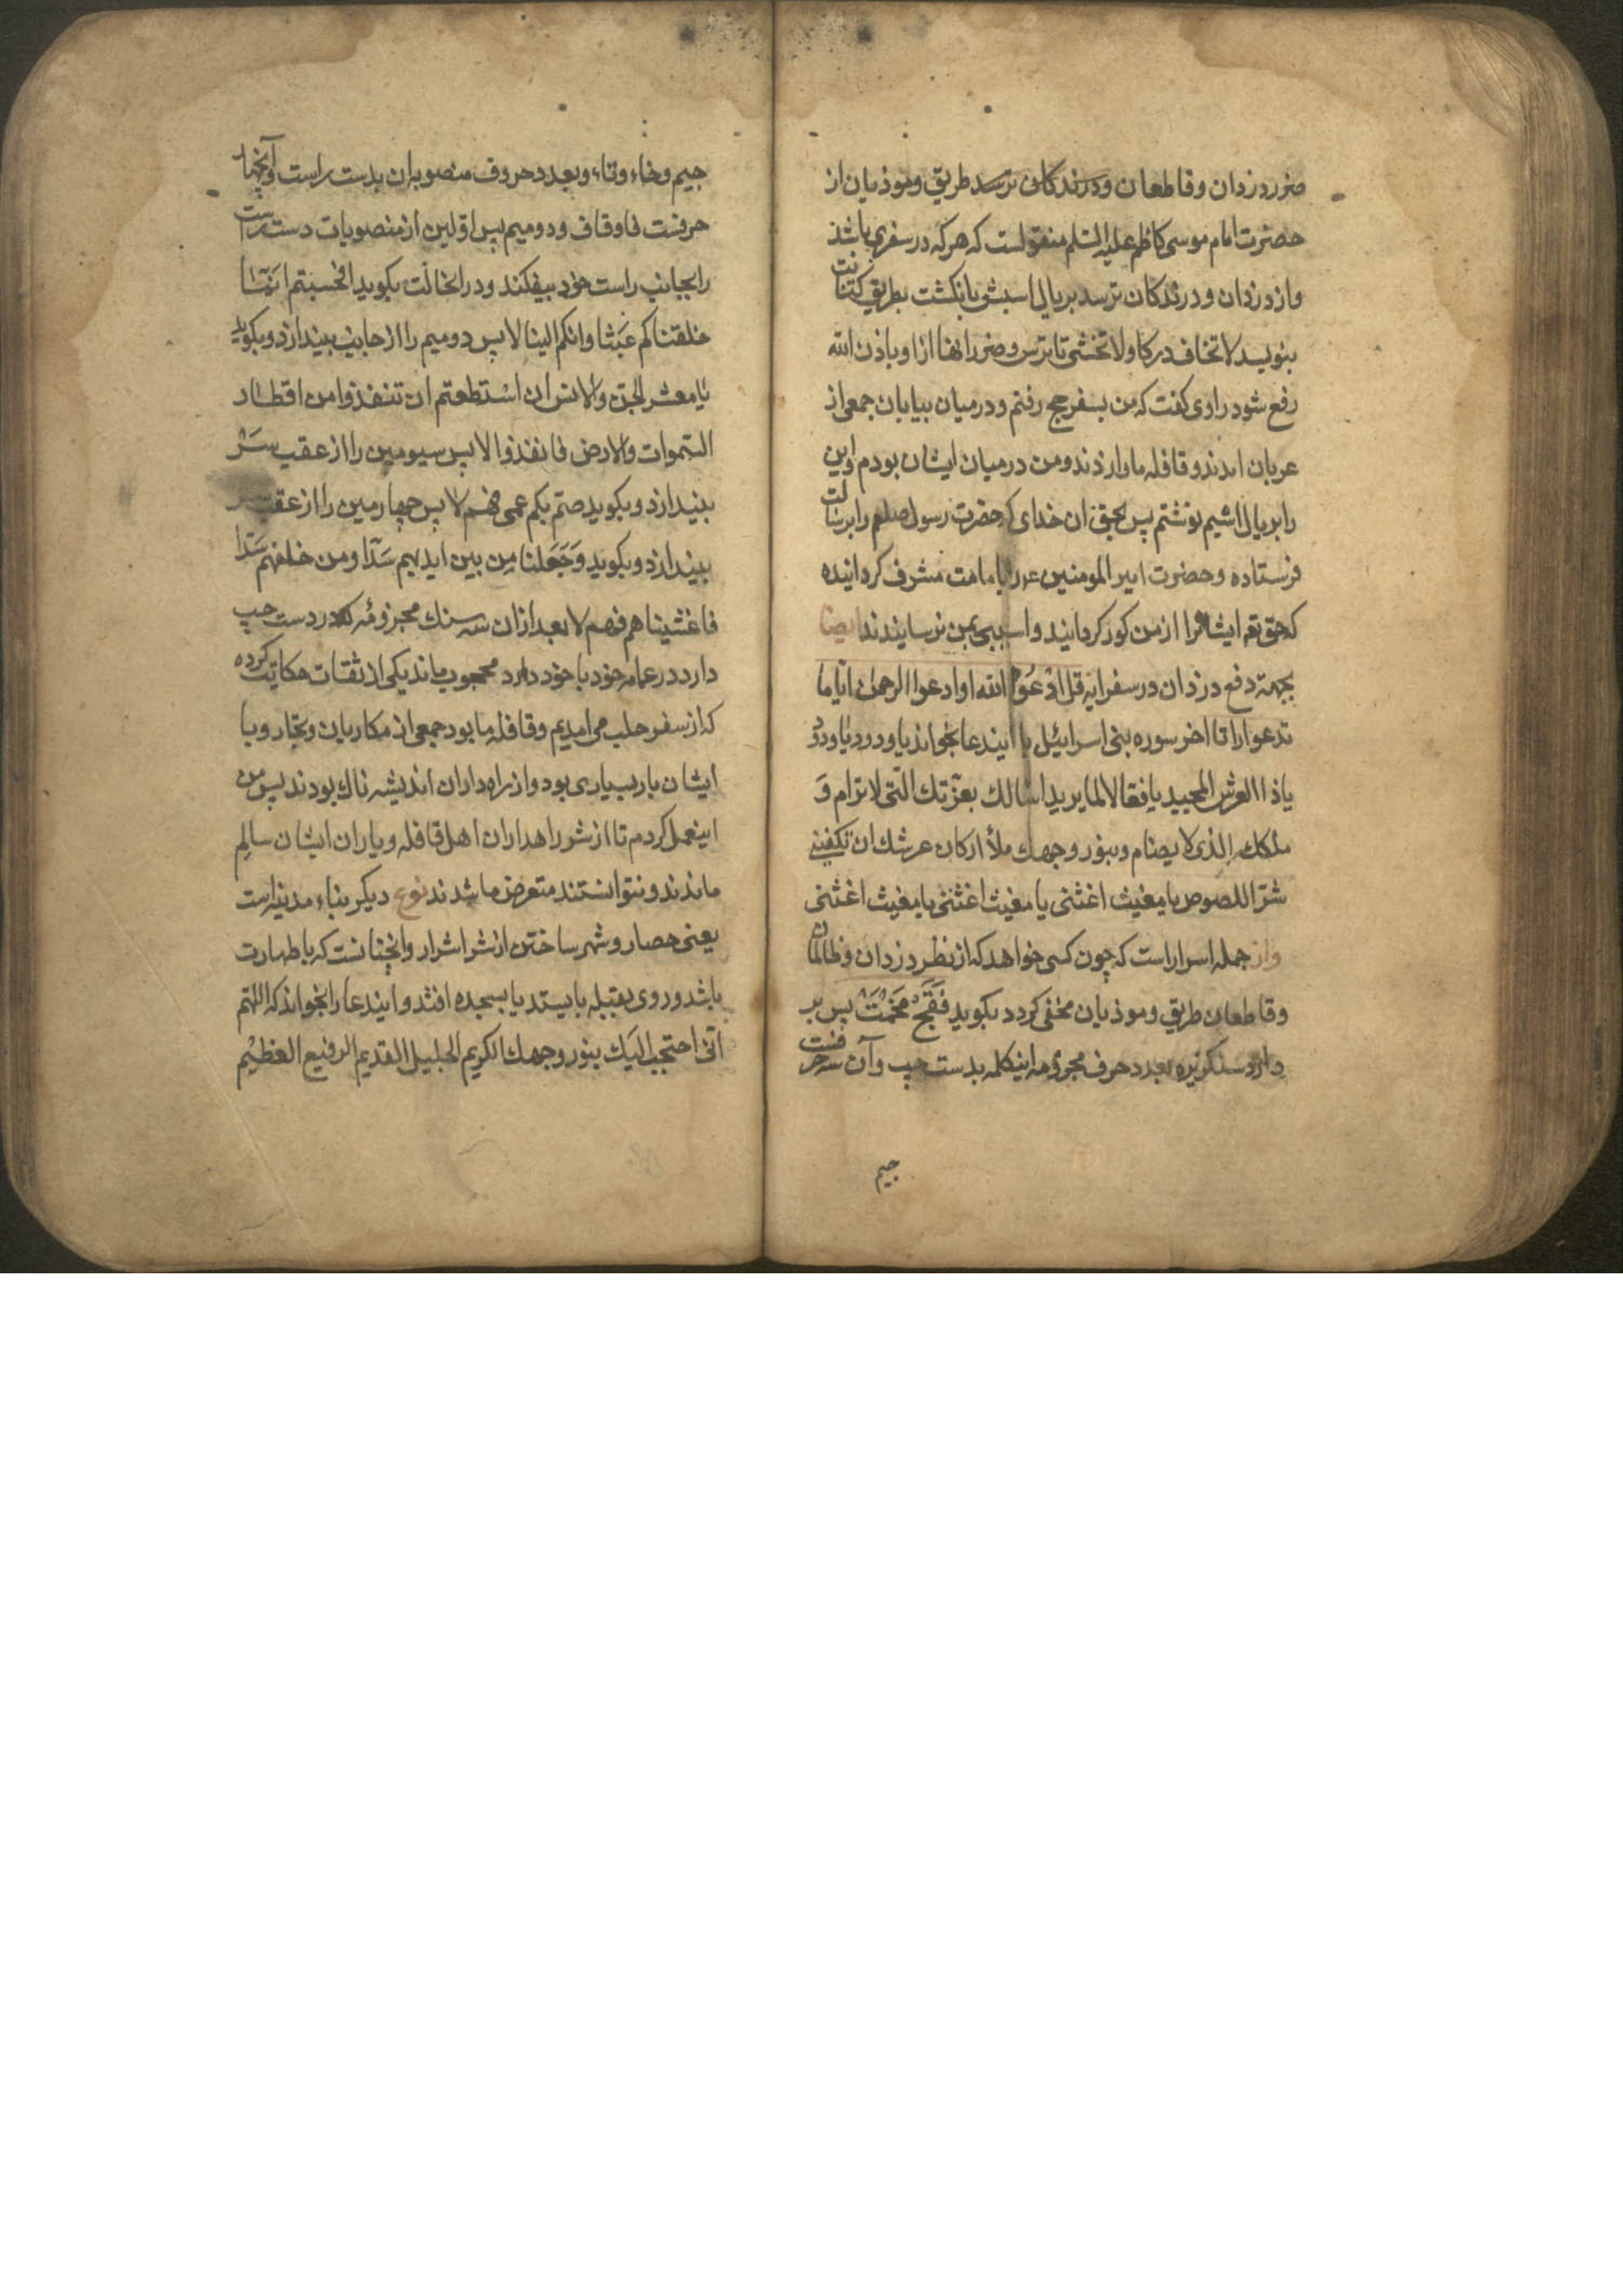 ضرر دزدان وقاطعان ودرندكان ترسد طريق وموذيان از
حضرت امام موسى كاظم عليه السلم منقولست كه هركه در سفرى باشد
واز دزدان ودرندكان ترسد بر يال اسبش بانكشت بطريق كتابت
بنويسد لا تخاف دركا ولا تخشى تا ترس وضرر انها از او باذن الله
رفع شود راوى كفت كه من بسفر حج رفتم ودرميان بيابان جمعى از
عربان امدند وقافله ما را زدند ومن درميان ايشان بودم واين
را بر يال اسبم نوشتم پس بحق ان خداى كه حضرت رسول صلعم را برسالت
فرستاده وحضرت امير المومنين را بامامت مشرف كردانيده
كه حق تع ايشانرا از من كور كردانيد واسيبى بمن نرسانيدند ايضا
بجهة دفع دزدان در سفر ايه قل ادعوا الله او ادعوا الرحمن اياما
تدعوا را تا اخر سوره بنى اسرائيل با ايندعا بخواند يا ودود يا ودود
يا ذا العرش المجيد يا فعالا لما يريد اسالك بعزتك التى لا ترام و
ملكك الذى لا يضام وبنور وجهك ملأ اركان عرشك ان تكفينى
شر اللصوص يا مغيث اغثنى يا مغيث اغثنى يا مغيث اغثنى
واز جمله اسرار است كه چون كسى خواهد كه از نظر دزدان وظالمان
وقاطعان طريق وموذيان مخفى كردد بكويد فَقَجْ مَخْمَتْ پس بر
دارد سنكريزه بعدد حرف مجزومه اينكلمه بدست چپ وآن سه حرفست
جيم
جيم وخاء وتاء وبعدد حروف منصوبه ان بدست راست وآنچهار
حرفست فا وقاف ودو ميم پس اولين از منصوبات دست راست
را بجانب راست خود بيفكند ودر انحالت بكويد افحسبتم انما
خلقناكم عبثا وانكم الينا لا پس دوميم را از جانب بيندازد وبكويد
يا معشر الجن والانس ان استطعتم ان تنفذوا من اقطار
السموات والارض فانفذوا لا پس سيومين را از عقب سر
بيندازد وبكويد صم بكم عمى فهم لا پس چهارمين را از عقب سر
بيندازد وبكويد وَجَعَلنا مِن بين ايديهم سَدّا ومن خلفهم سدا
فاغشيناهم فهم لا بعد ازان سه سنك مجزومه كه در دست چپ
دارد در عمامه خود با خود دارد محجوب ماند يكى از ثقات حكايت كرده
كه از سفر حلب مى امديم وقافله ما بود جمعى از مكاريان وتجار وبا
ايشان بار بسيارى بود واز راه داران انديشه ناك بودند پس من
اينعمل كردم تا از شر راهداران اهل قافله وياران ايشان سالم
ماندند ونتوانستند متعرض ما شدند نوع ديكر بناء مدينه است
يعنى حصار وشهر ساختن از شر اشرار وانچنانست كه با طهارت
باشد وروى بقبله بايستد يا بسجده افتد وايندعا را بخواند كه اللهم
انى احتجب اليك بنور وجهك الكريم الجليل القديم الرفيع العظيم